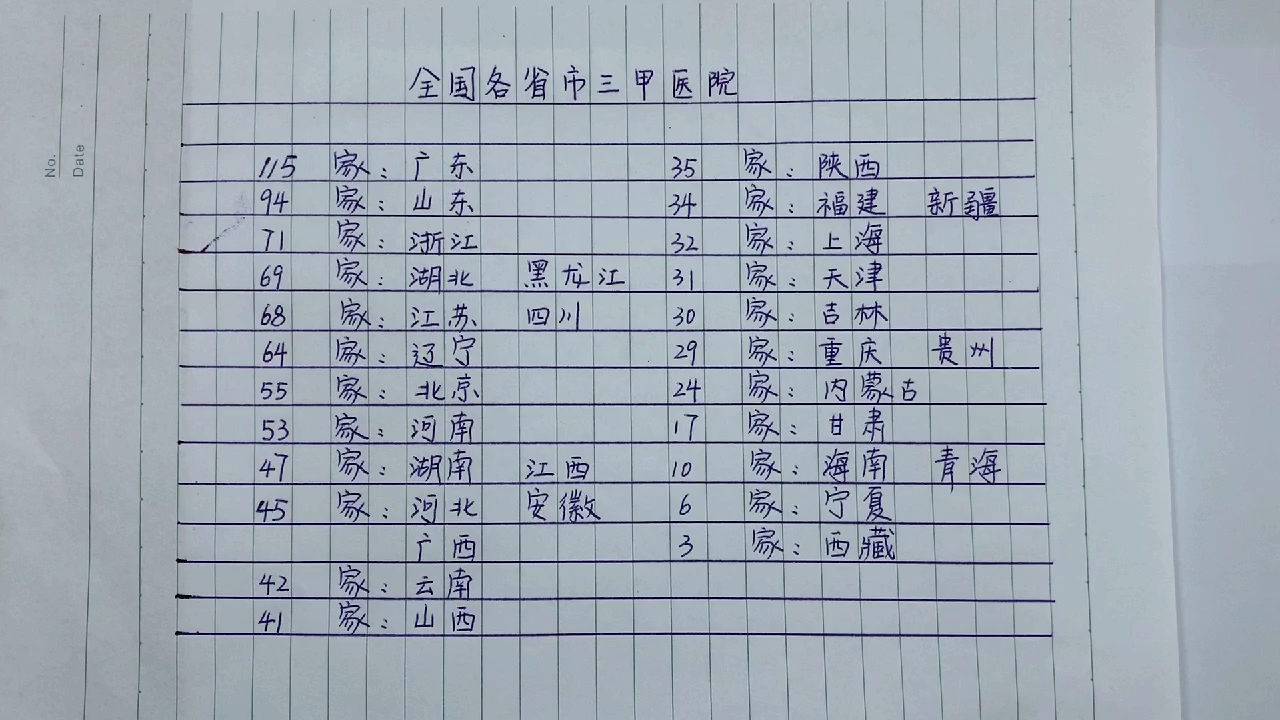 No.
Date
全国各省市三甲医院
115 家：广东 35 家：陕西
94 家：山东 34 家：福建 新疆
71 家：浙江 32 家：上海
69 家：湖北 黑龙江 31 家：天津
68 家：江苏 四川 30 家：吉林
64 家：辽宁 29 家：重庆 贵州
55 家：北京 24 家：内蒙古
53 家：河南 17 家：甘肃
47 家：湖南 江西 10 家：海南 青海
45 家：河北 安徽 6 家：宁夏
广西 3 家：西藏
42 家：云南
41 家：山西